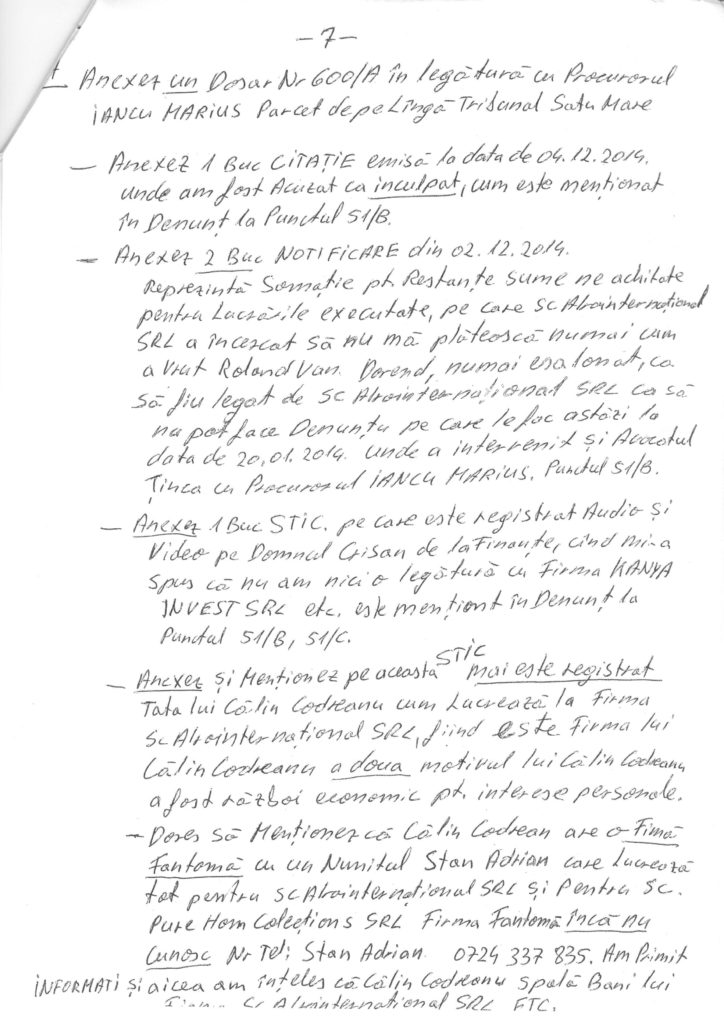 -7-
Anexez un Dosar Nr 600/A în legătură cu Procurorul
IANCU MARIUS Parcet de pe Lîngă Tribunal Satu Mare
— Anexez 1 Buc CITAȚIE emisă la data de 04.12.2014.
unde am fost Acuzat ca inculpat, cum este menționat
în Denunț la Punctul 51/B.
— Anexez 2 Buc NOTIFICARE din 02.12.2014.
Reprezintă Somație pt. Restanțe sume ne achitate
pentru Lucrările executate, pe care SC Alrointernațional
SRL a încercat să nu mă plătească numai cum
a vrut Roland Van. Dorend, numai esalonat, ca
să fiu legat de SC Alrointernațional SRL ca să
nu pot face Denunțu pe care le fac astăzi la
data de 20.01.2014. unde a intervenit și Avocatul
Ținca cu Procurorul IANCU MARIUS. Punctul 51/B.
— Anexez 1 Buc STIC. pe care este registrat Audio și
Video pe Domnul Crisan de la Finanțe, cînd mi-a
spus că nu am nici o legătură cu Firma KANYA
INVEST SRL etc. este menționt în Denunț la
Punctul 51/B, 51/C.
— Anexez și Menționez pe aceasta STIC mai este registrat
Tata lui Călin Codreanu cum Lucrează la Firma
SC Alrointernațional SRL, fiind este Firma lui
Călin Codreanu a doua motivul lui Călin Codreanu
a fost război economic pt. interese personale.
— Doresc să Menționez că Călin Codrean are o Firmă
Fantomă cu un Numitul Stan Adrian care Lucrează
tot pentru SC Alrointernațional SRL și Pentru SC.
Pure Hom Colecțions SRL Firma Fantomă încă nu
Cunosc Nr Tel; Stan Adrian. 0724 337 835. Am Primit
INFORMATI și aicea am înțeles că Călin Codreanu spală Bani lui
SC Alrointernational SRL ETC.